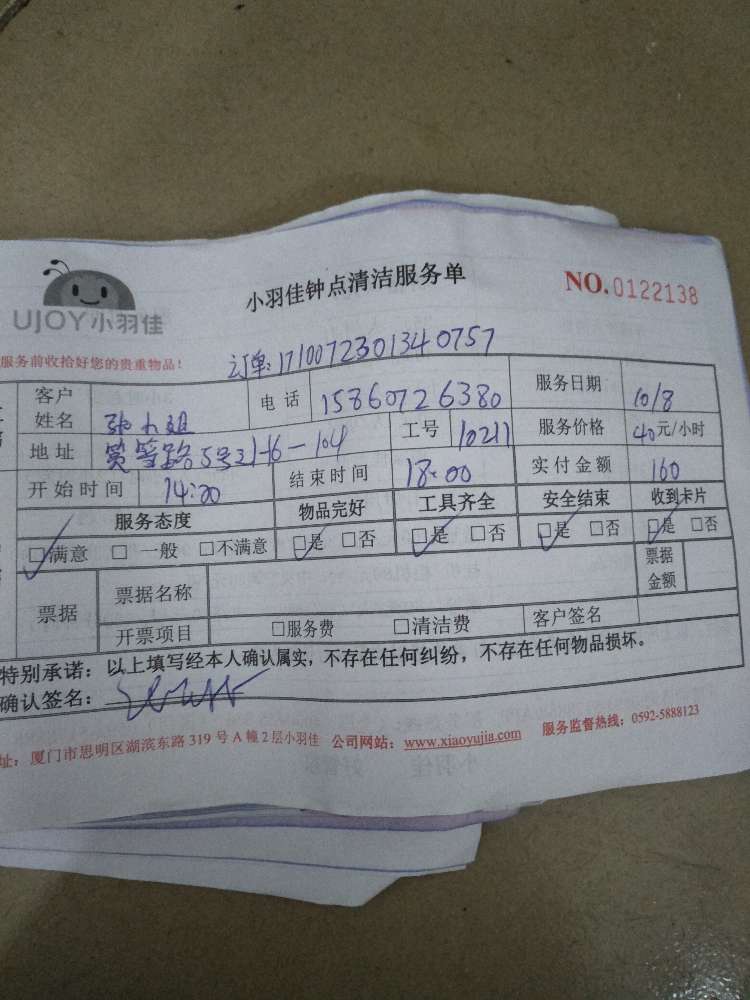 UJOY小羽佳
小羽佳钟点清洁服务单
NO.0122138
服务前收拾好您的贵重物品!
订单:171007230134 0757
客户姓名 张小姐 电话 15860726380 服务日期 10/8
地址 路5号 16-104 工号 10211 服务价格 40元/小时
开始时间 14:00 结束时间 18:00 实付金额 160
服务态度 物品完好 工具齐全 安全结束 收到卡片
☑满意 □一般 □不满意 ☑是 □否 ☑是 □否 ☑是 □否 ☑是 □否
票据 票据名称 票据金额
开票项目 □服务费 □清洁费 客户签名
特别承诺:以上填写经本人确认属实,不存在任何纠纷,不存在任何物品损坏。
确认签名:
址:厦门市思明区湖滨东路319号A幢2层小羽佳 公司网站:www.xiaoyujia.com 服务监督热线:0592-5888123